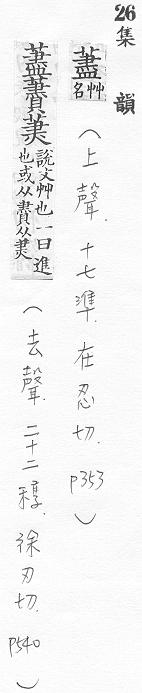 26
集韻
藎 艸名 (上聲. 十七準. 在忍切. p353)
藎 說文艸也一曰進也或从賮从㶳 (去聲. 二十二稕. 徐刃切. p540)